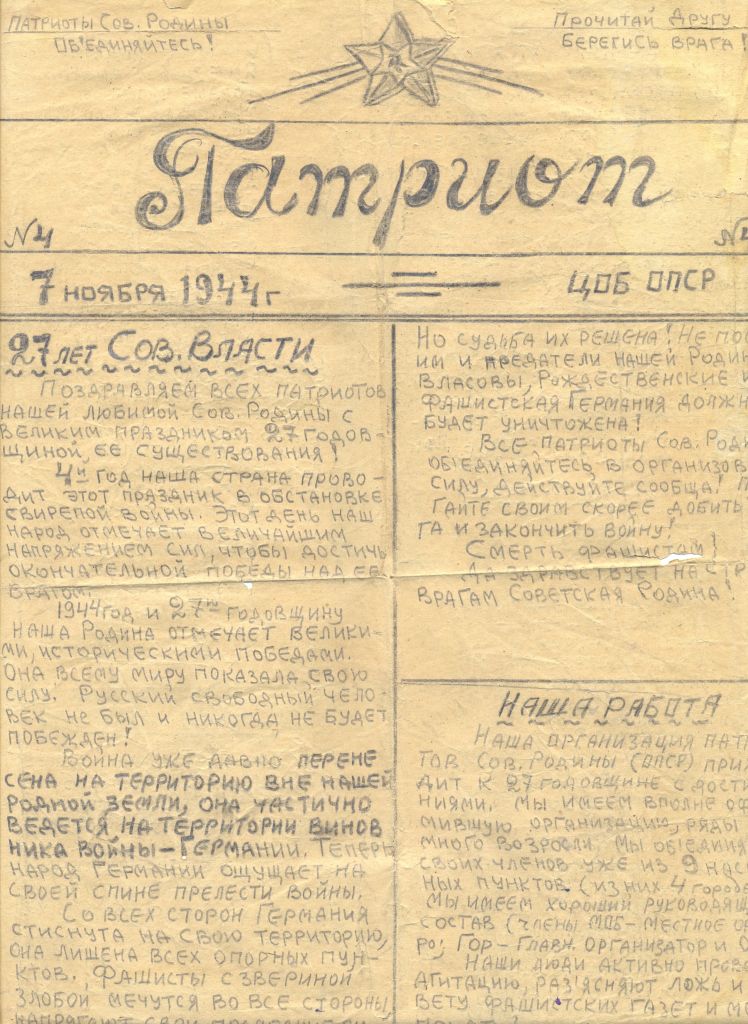 Патриоты Сов. Родины
Об'единяйтесь!
Прочитай Другу
Берегись врага!
Патриот
№4
7 ноября 1944 г
ЦОБ ОПСР
27 лет Сов. Власти
Поздравляем всех патриотов
нашей любимой Сов. Родины с
великим праздником 27 годов-
щиной, ее существования!
4й год наша страна прово-
дит этот праздник в обстановке
свирепой войны. Этот день наш
народ отмечает величайшим
напряжением сил, чтобы достичь
окончательной победы над ее
врагом.
1944 год и 27ю годовщину
наша Родина отмечает велики-
ми, историческими победами.
Она всему миру показала свою
силу. Русский свободный чело-
век не был и никогда не будет
побежден!
Война уже давно перене
сена на территорию вне нашей
родной земли, она частично
ведется на территории винов
ника войны – Германии. Теперь
народ Германии ощущает на
своей спине прелести войны.
Со всех сторон Германия
стиснута на свою территорию,
она лишена всех опорных пун-
ктов. Фашисты с звериной
злобой мечутся во все стороны,
напрягают свои
Но судьба их решена! Не
им и предатели нашей
Власовы, Рождественские и
фашистская Германия
будет уничтожена!
Все патриоты Сов.
об'единяйтесь в
силу, действуйте сообща!
гайте своим скорее добить
га и закончить войну!
Смерть фашистам!
Да здравствует на
врагам Советская Родина!
Наша работа
Наша организация
тов Сов. Родины (ОПСР)
дит к 27 годовщине с
ниями. Мы имеем вполне
мившую организацию, ряды
много возросли. Мы
своих членов уже из 9
ных пунктов (из них 4
Мы имеем хороший
состав (члены МОБ – местное
ро; Гор – Главн. организатор и
Наши люди активно
агитацию, раз'ясняют ложь и
вету фашистских газет и